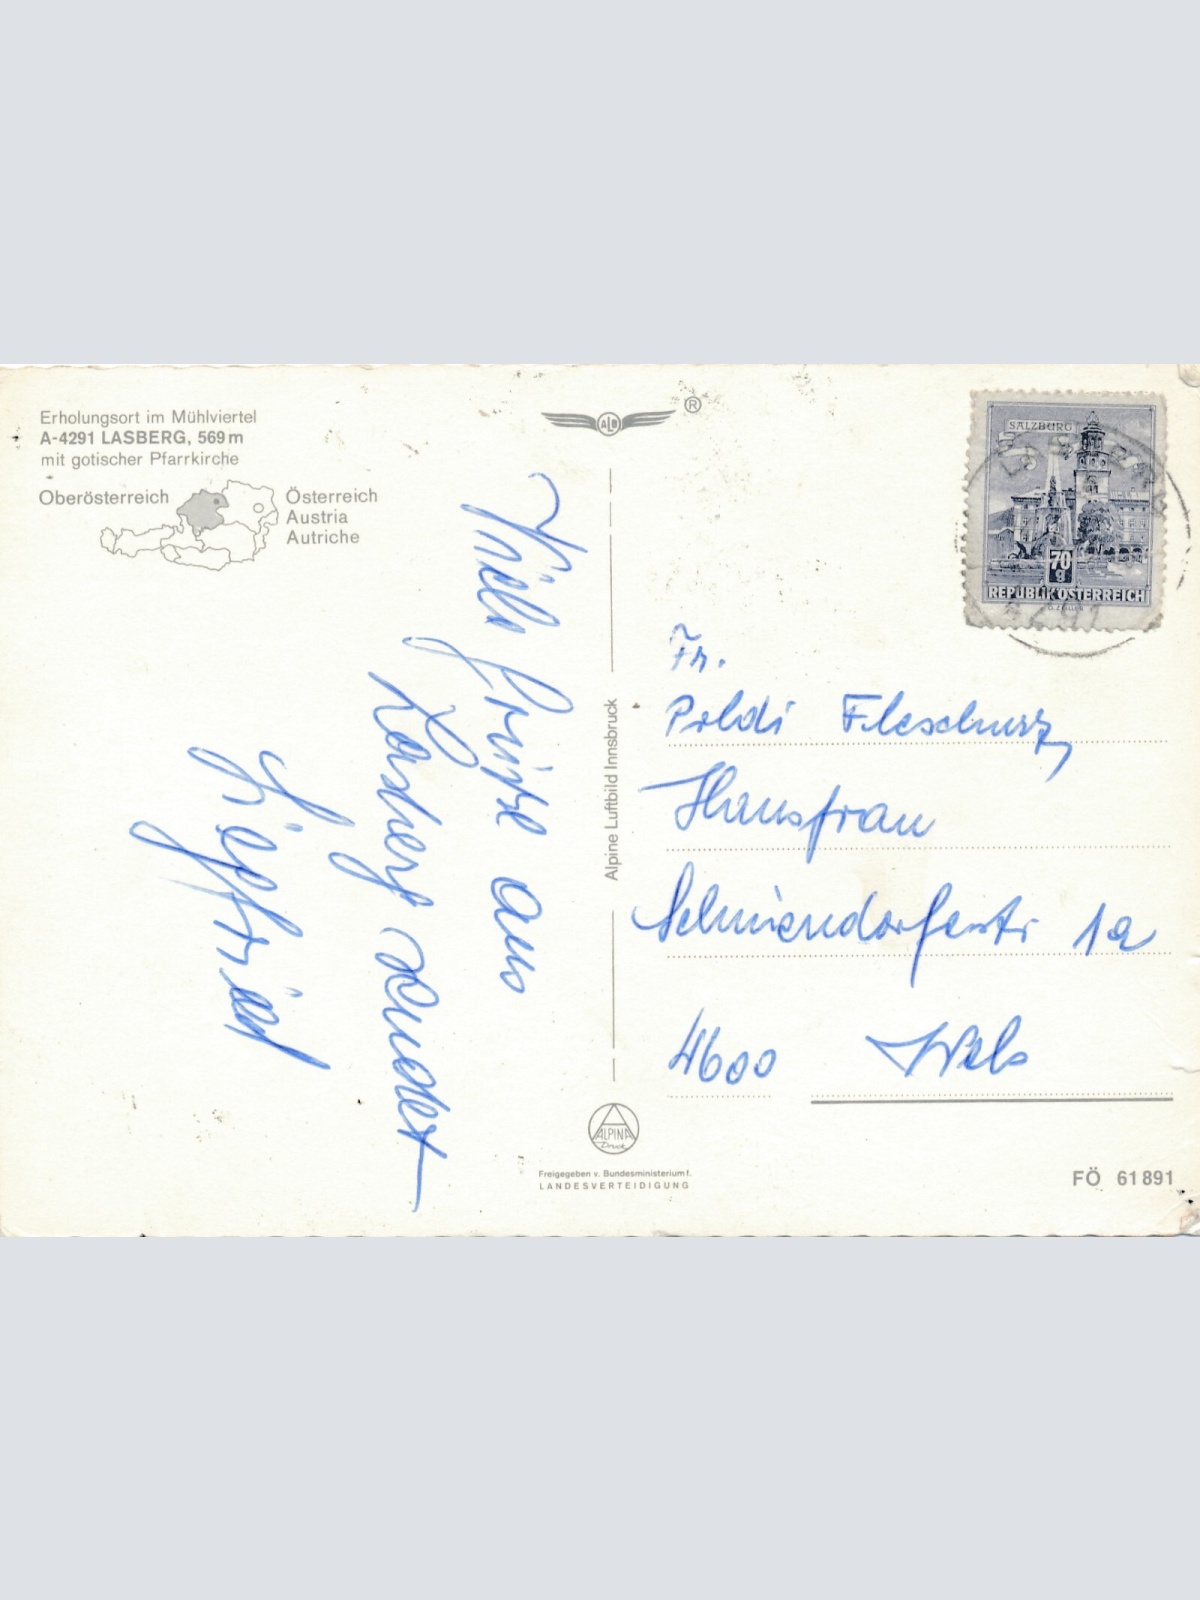 Erholungsort im Mühlviertel
A-4291 LASBERG, 569 m
mit gotischer Pfarrkirche
Oberösterreich
Österreich
Austria
Autriche
ALB
®
Viele Grüße aus
Lasberg sendet
Siegfried
Alpine Luftbild Innsbruck
ALPINA
Druck
Freigegeben v. Bundesministerium f.
LANDESVERTEIDIGUNG
SALZBURG
70
g
REPUBLIK ÖSTERREICH
Fr.
Poldi
Hausfrau
1a
4600 Wels
FÖ 61 891